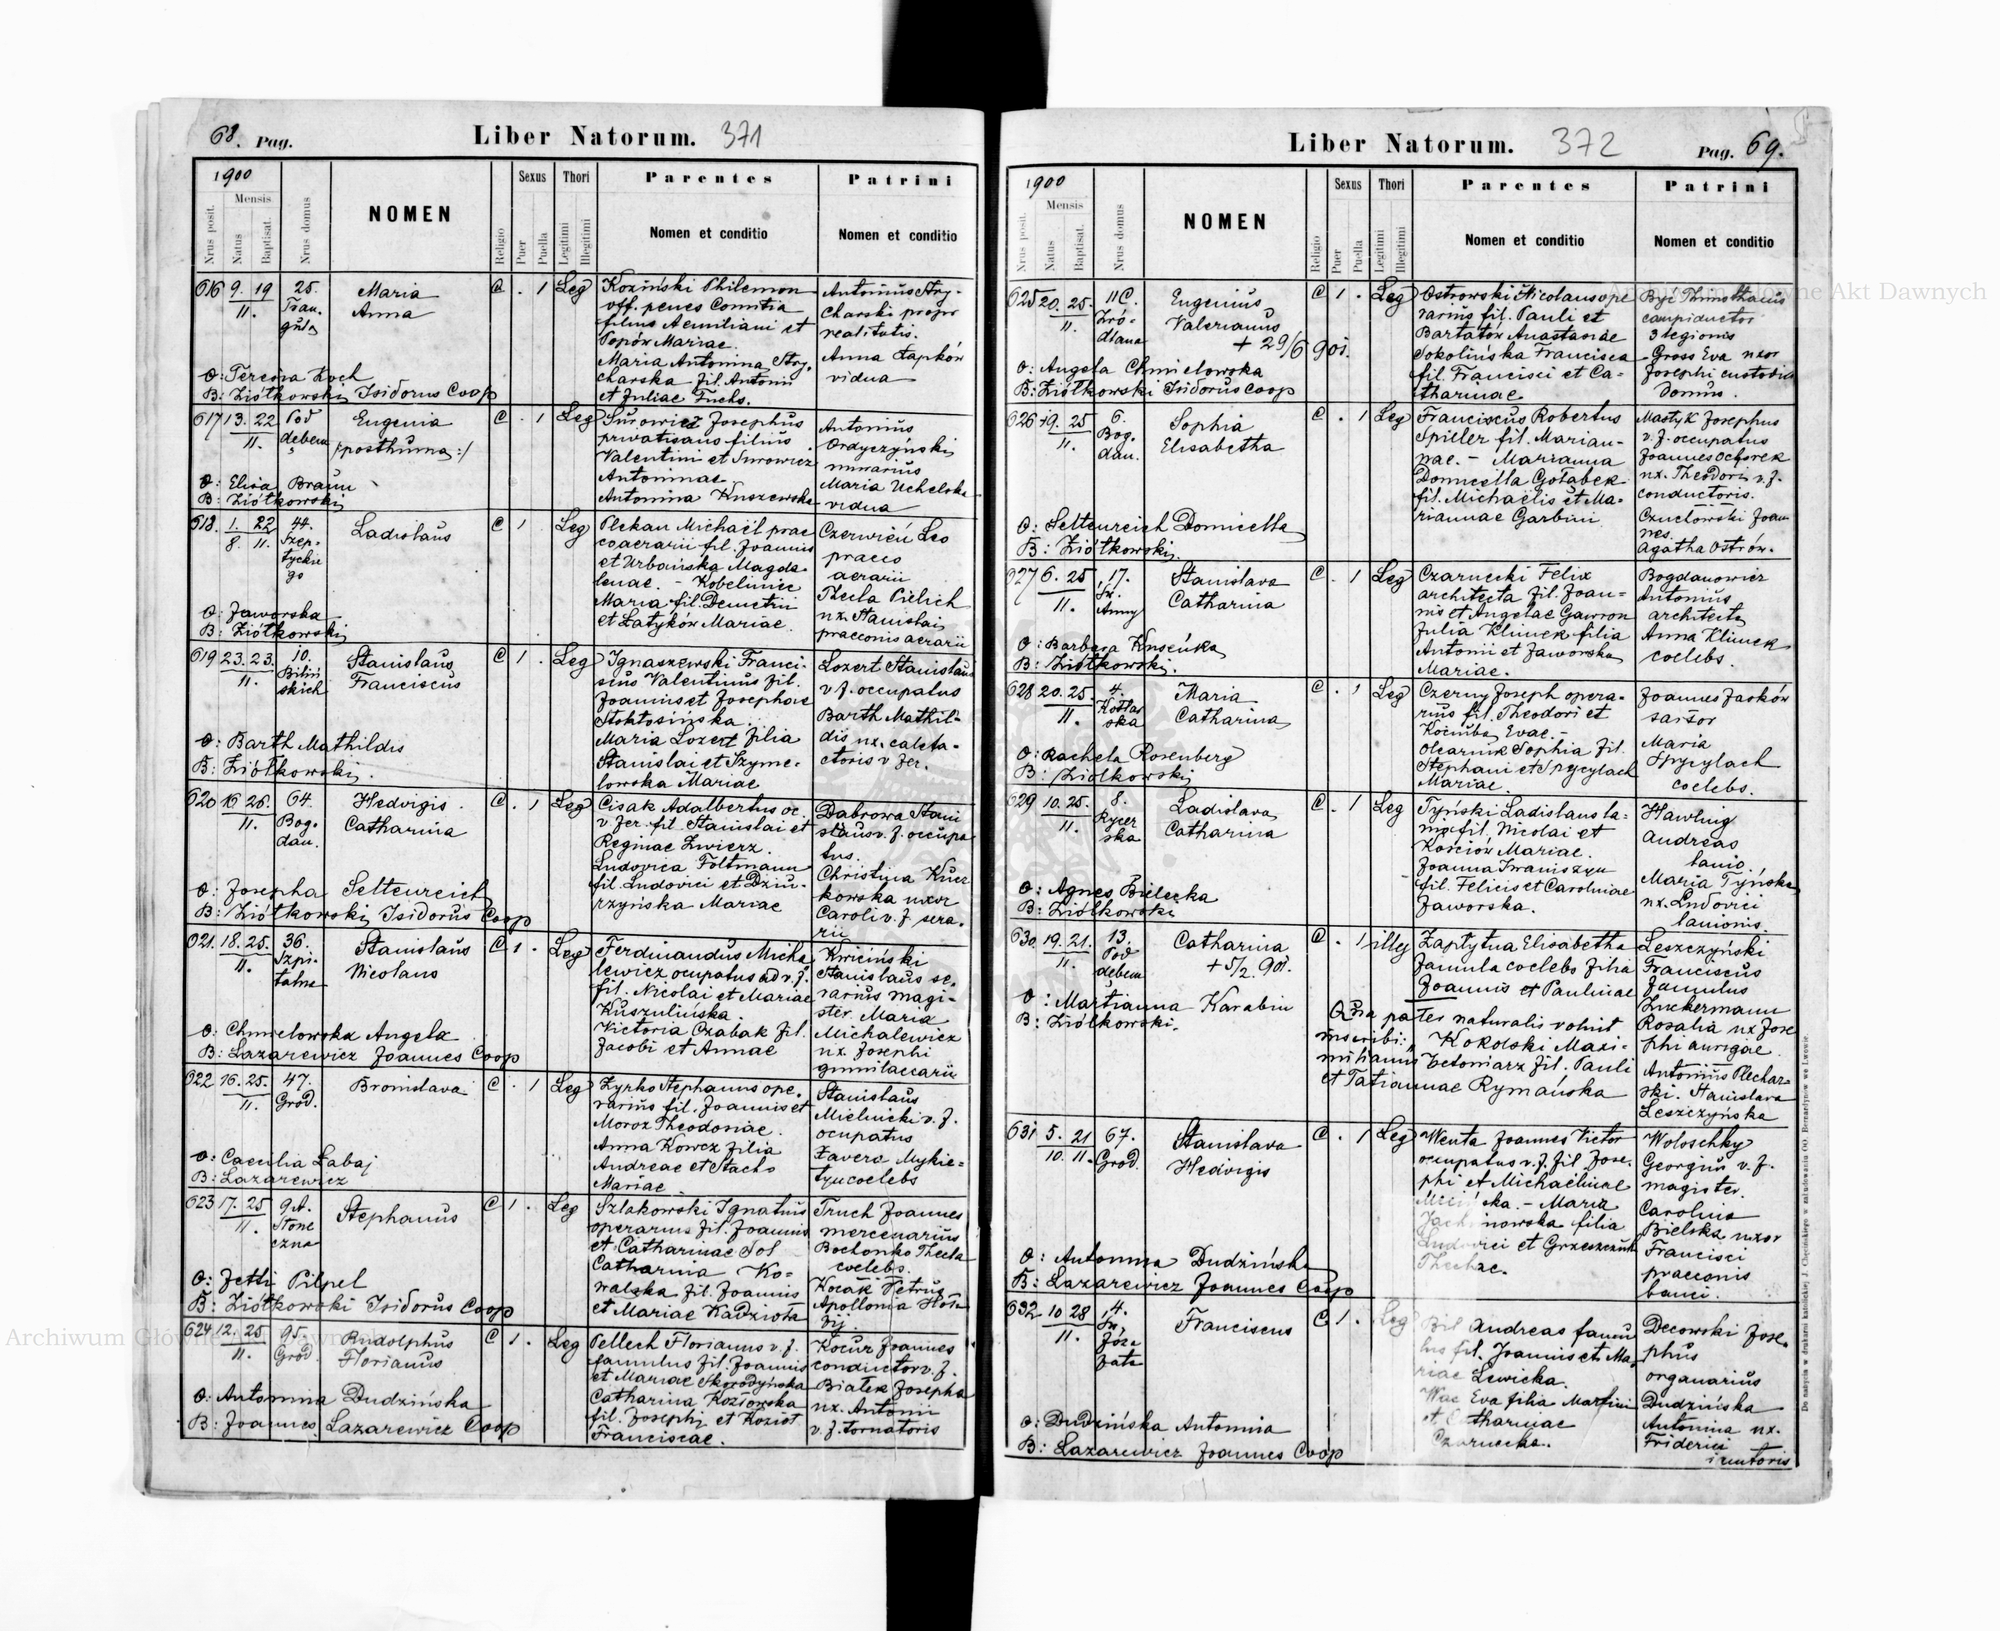 68. Pag.
Liber Natorum. 371
1900
Mensis
Nrus posit.
Natus
Baptisat.
Nrus domus
NOMEN
Religio
Sexus
Puer
Puella
Thori
Legitimi
Illegitimi
Parentes
Nomen et conditio
Patrini
Nomen et conditio
616 9. 19 25. Maria C . 1 Leg Koziński Philemon
II. Anna off. penes Comitia
filius Aemiliani et
Popów Mariae.
Maria Antonina Stry-
charska fil. Antonii
et Juliae Fuchs.
Antonius Stry-
charski propr
realitatis.
Anna Łapków
vidua
O: Teresia Koch
B: Ziółkowski Isidorus Coop
617 13. 22 Pod Eugenia C . 1 Leg
II. dębem /posthuma:/
Surowicz Josephus
privatisans filius
Valentini et Surowicz
Antoninae
Antonina Kuszewska
Antonius
Ordyczyński
murarius
Maria Uchelska
vidua
O: Elisa Braun
B: Ziółkowski
618. 1. 22 44. Ladislaus C 1 Leg
8. II. Szep-
tyckie
go
Plekan Michaël prae
co aerarii fil. Joannis
et Urbańska Magda
lenae. - Kobelinie
Maria fil. Demetrii
et Latyków Mariae.
Czerwień Leo
praeco
aerarii
Thecla Pielich
ux. Stanislai
praeconis aerarii
O: Jaworska
B: Ziółkowski
619 23. 23. 10. Stanislaus C 1 . Leg
II. Biliń Franciscus
skich
Ignaszewski Franci-
scus Valentinus fil.
Joannis et Josephae
Stoktosińska.
Maria Lozert filia
Stanislai et Szyme-
lowska Mariae
Lozert Stanislaus
v. f. occupatus
Barth Mathil-
dis ux. calefa-
ctoris v fer.
O: Barth Mathildis
B: Ziółkowski.
620 16 26. 64. Hedvigis C . 1 Leg
II. Bog- Catharina
dan.
Cisak Adalbertus oc.
v. fer. fil. Stanislai et
Reginae Zwierz.
Ludovica Foltmann
fil. Ludovici et Dziu-
rzyńska Mariae
Dabrowa Stani
slaus v. f. occupa
tus.
Christina Kucz
kowska uxor
Caroli v. f sera-
rii
O: Josepha Seltenreich
B: Ziółkowski Isidorus Coop
621. 18. 25. 36. Stanislaus C 1 . Leg
II. Szpi- Nicolaus
talna
Ferdinandus Micha
lewicz ocupatus ad v. f.
fil. Nicolai et Mariae
Kuszulińska.
Victoria Czabak fil.
Jacobi et Annae
Kwiciński
Stanislaus se-
rarius magi-
ster. Maria
Michalewicz
ux. Josephi
gumilaccarii
O: Chmielowska Angela
B: Lazarewicz Joannes Coop
622 16. 25. 47. Bronislava C . 1 Leg
II. Grod.
Żyrko Stephanus ope-
rarius fil. Joannis et
Moroz Theodosiae.
Anna Kowcz filia
Andreae et Stachs
Mariae
Stanislaus
Mielnicki v. f.
ocupatus
Xavera Mykie-
tyn coelebs
O: Caecilia Łabaj
B: Lazarewicz
623 17. 25 9A. Stephanus C 1 . Leg
II. Słone
czna
Szlakowski Ignatius
operarius fil. Joannis
et Catharinae Sol
Catharina Ko-
walska fil. Joannis
et Mariae Kadziola
Truch Joannes
mercenarius
Bochonko Thecla
coelebs.
Kozak Petrus
Apollonia
O: Jetti Pilpel
B: Ziółkowski Isidorus Coop
624 12. 25 95. Rudolphus C 1 . Leg
II. Grod. Florianus
Pellech Florianus v. f.
famulus fil. Joannis
et Mariae Skorodyńska
Catharina Kozłowska
fil. Josephi et Kozioł
Franciscae.
Kocur Joannes
conductor v. f.
Białek Josepha
ux. Antonii
v. f. tornatoris
O: Antonina Dudzińska
B: Joannes Lazarewicz Coop
Liber Natorum. 372
Pag. 69.
1900
Mensis
Nrus posit.
Natus
Baptisat.
Nrus domus
NOMEN
Religio
Sexus
Puer
Puella
Thori
Legitimi
Illegitimi
Parentes
Nomen et conditio
Patrini
Nomen et conditio
625 20. 25. 11C. Eugenius C 1 . Leg
II. Źró- Valerianus
dlana + 29/6 901.
Ostrowski Nicolaus ope
rarius fil. Pauli et
Bartatów Anastasiae
Sokolińska Francisca
fil. Francisci et Ca-
tharinae
Byś Thimothaeus
campiductor
3 legionis
Gross Eva uxor
Josephi custodis
domus.
O: Angela Chmielowska
B: Ziółkowski Isidorus Coop
626 19. 25 6. Sophia C . 1 Leg
II. Bog- Elisabetha
dan.
Franciscus Robertus
Spieler fil. Marian-
nae. - Marianna
Domicella Gołąbek
fil. Michaëlis et Ma-
riannae Garbini
Mastyk Josephus
v. f. occupatus
Joannes Ochsrek
ux. Theodori v. f.
conductoris.
Czuczowski Joan
nes.
Agatha Ostrów.
O: Seltenreich Domicella
B: Ziółkowski.
627 6. 25 17. Stanislava C . 1 Leg
II. Św. Catharina
Anny
Czarnecki Felix
architecta fil. Joan-
nis et Angelae Gawron
Julia Klimek filia
Antonii et Jaworska
Mariae.
Bogdanowicz
Antonius
architecta
Anna Klimek
coelebs.
O: Barbara Kuseńka
B: Ziółkowski.
628 20. 25. 4. Maria C . 1 Leg
II. Kotlar Catharina
ska
Czerny Joseph opera-
rius fil. Theodori et
Kociuba Evae. -
Olearnik Sophia fil.
Stephani et Spycylach
Mariae.
Joannes Jasków
sartor
Maria
Spycylach
coelebs.
O: Rachela Rosenberg
B: Ziółkowski
629 10. 25. 8. Ladislava C . 1 Leg
II. Rycer Catharina
ska
Tyński Ladislaus la-
nio fil. Nicolai et
Kościów Mariae.
Joanna Iwaniszyn
fil. Felicis et Carolinae
Jaworska.
Hawling
Andreas
lanio
Maria Tyńska
ux. Ludovici
lanionis.
O: Agnes Bielecka
B: Ziółkowski
630 19. 21. 13. Catharina C . 1 illeg
II. Pod + 5/2. 901.
dębem
Zaplytna Elisabetha
famula coelebs filia
Joannis et Paulinae
Quia pater naturalis voluit
inscribi: Kokolski Maxi-
milianus tectoniarz fil. Pauli
et Tatiannae Rymańska
Leszczyński
Franciscus
famulus
Zuckermann
Rosalia ux Jose
phi aurigae.
Antonius Plechar-
ski. Stanislava
Leszczyńska
O: Martianna Karabin
B: Ziółkowski.
631 5. 21 67. Stanislava C . 1 Leg
10. II. Grod. Hedvigis
Wenta Joannes Victor
ocupatus v. f. fil Jose-
phi et Michaelinae
- Maria
filia
Ludovici et Grzeszczuk
Theclae.
Woloschky
Georgius v. f.
magister.
Carolina
Bielska uxor
Francisci
praeconis
banci.
O: Antonina Dudzińska
B: Lazarewicz Joannes Coop
632 10 28 4. Franciscus C 1 . Leg
II. Św. Józe
fata
Bil Andreas famu
lus fil. Joannis et Ma
riae Lewicka.
Wac Eva filia Martini
et Catharinae
Czarnecka.
Decowski Jose-
phus
organarius
Dudzińska
Antonina ux.
Friderici
O: Dudzińska Antonina
B: Lazarewicz Joannes Coop
Do nabycia w drukarni katolickiej J. Chęcińskiego w zabudowaniu OO. Bernardynów we Lwowie.
Archiwum Główne Akt Dawnych
Archiwum Główne Akt Dawnych